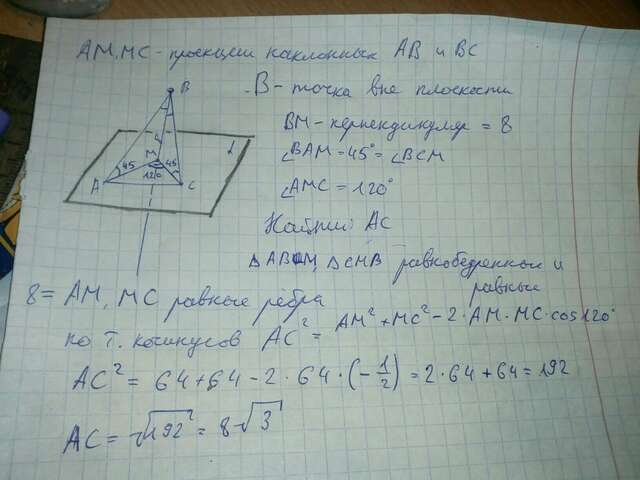 AM, MC - проекции наклонных AB и BC
B - точка вне плоскости
BM - перпендикуляр = 8
∠BAM = 45° = ∠BCM
∠AMC = 120°
Найти AC
B
M
45
45
120
A
C
α
△ABM, △CMB равнобедренные и равные
8 = AM, MC равные рёбра
по т. косинусов AC² = AM² + MC² - 2 · AM · MC · cos 120°
AC² = 64 + 64 - 2 · 64 · (-1/2) = 2 · 64 + 64 = 192
AC = √192 = 8√3